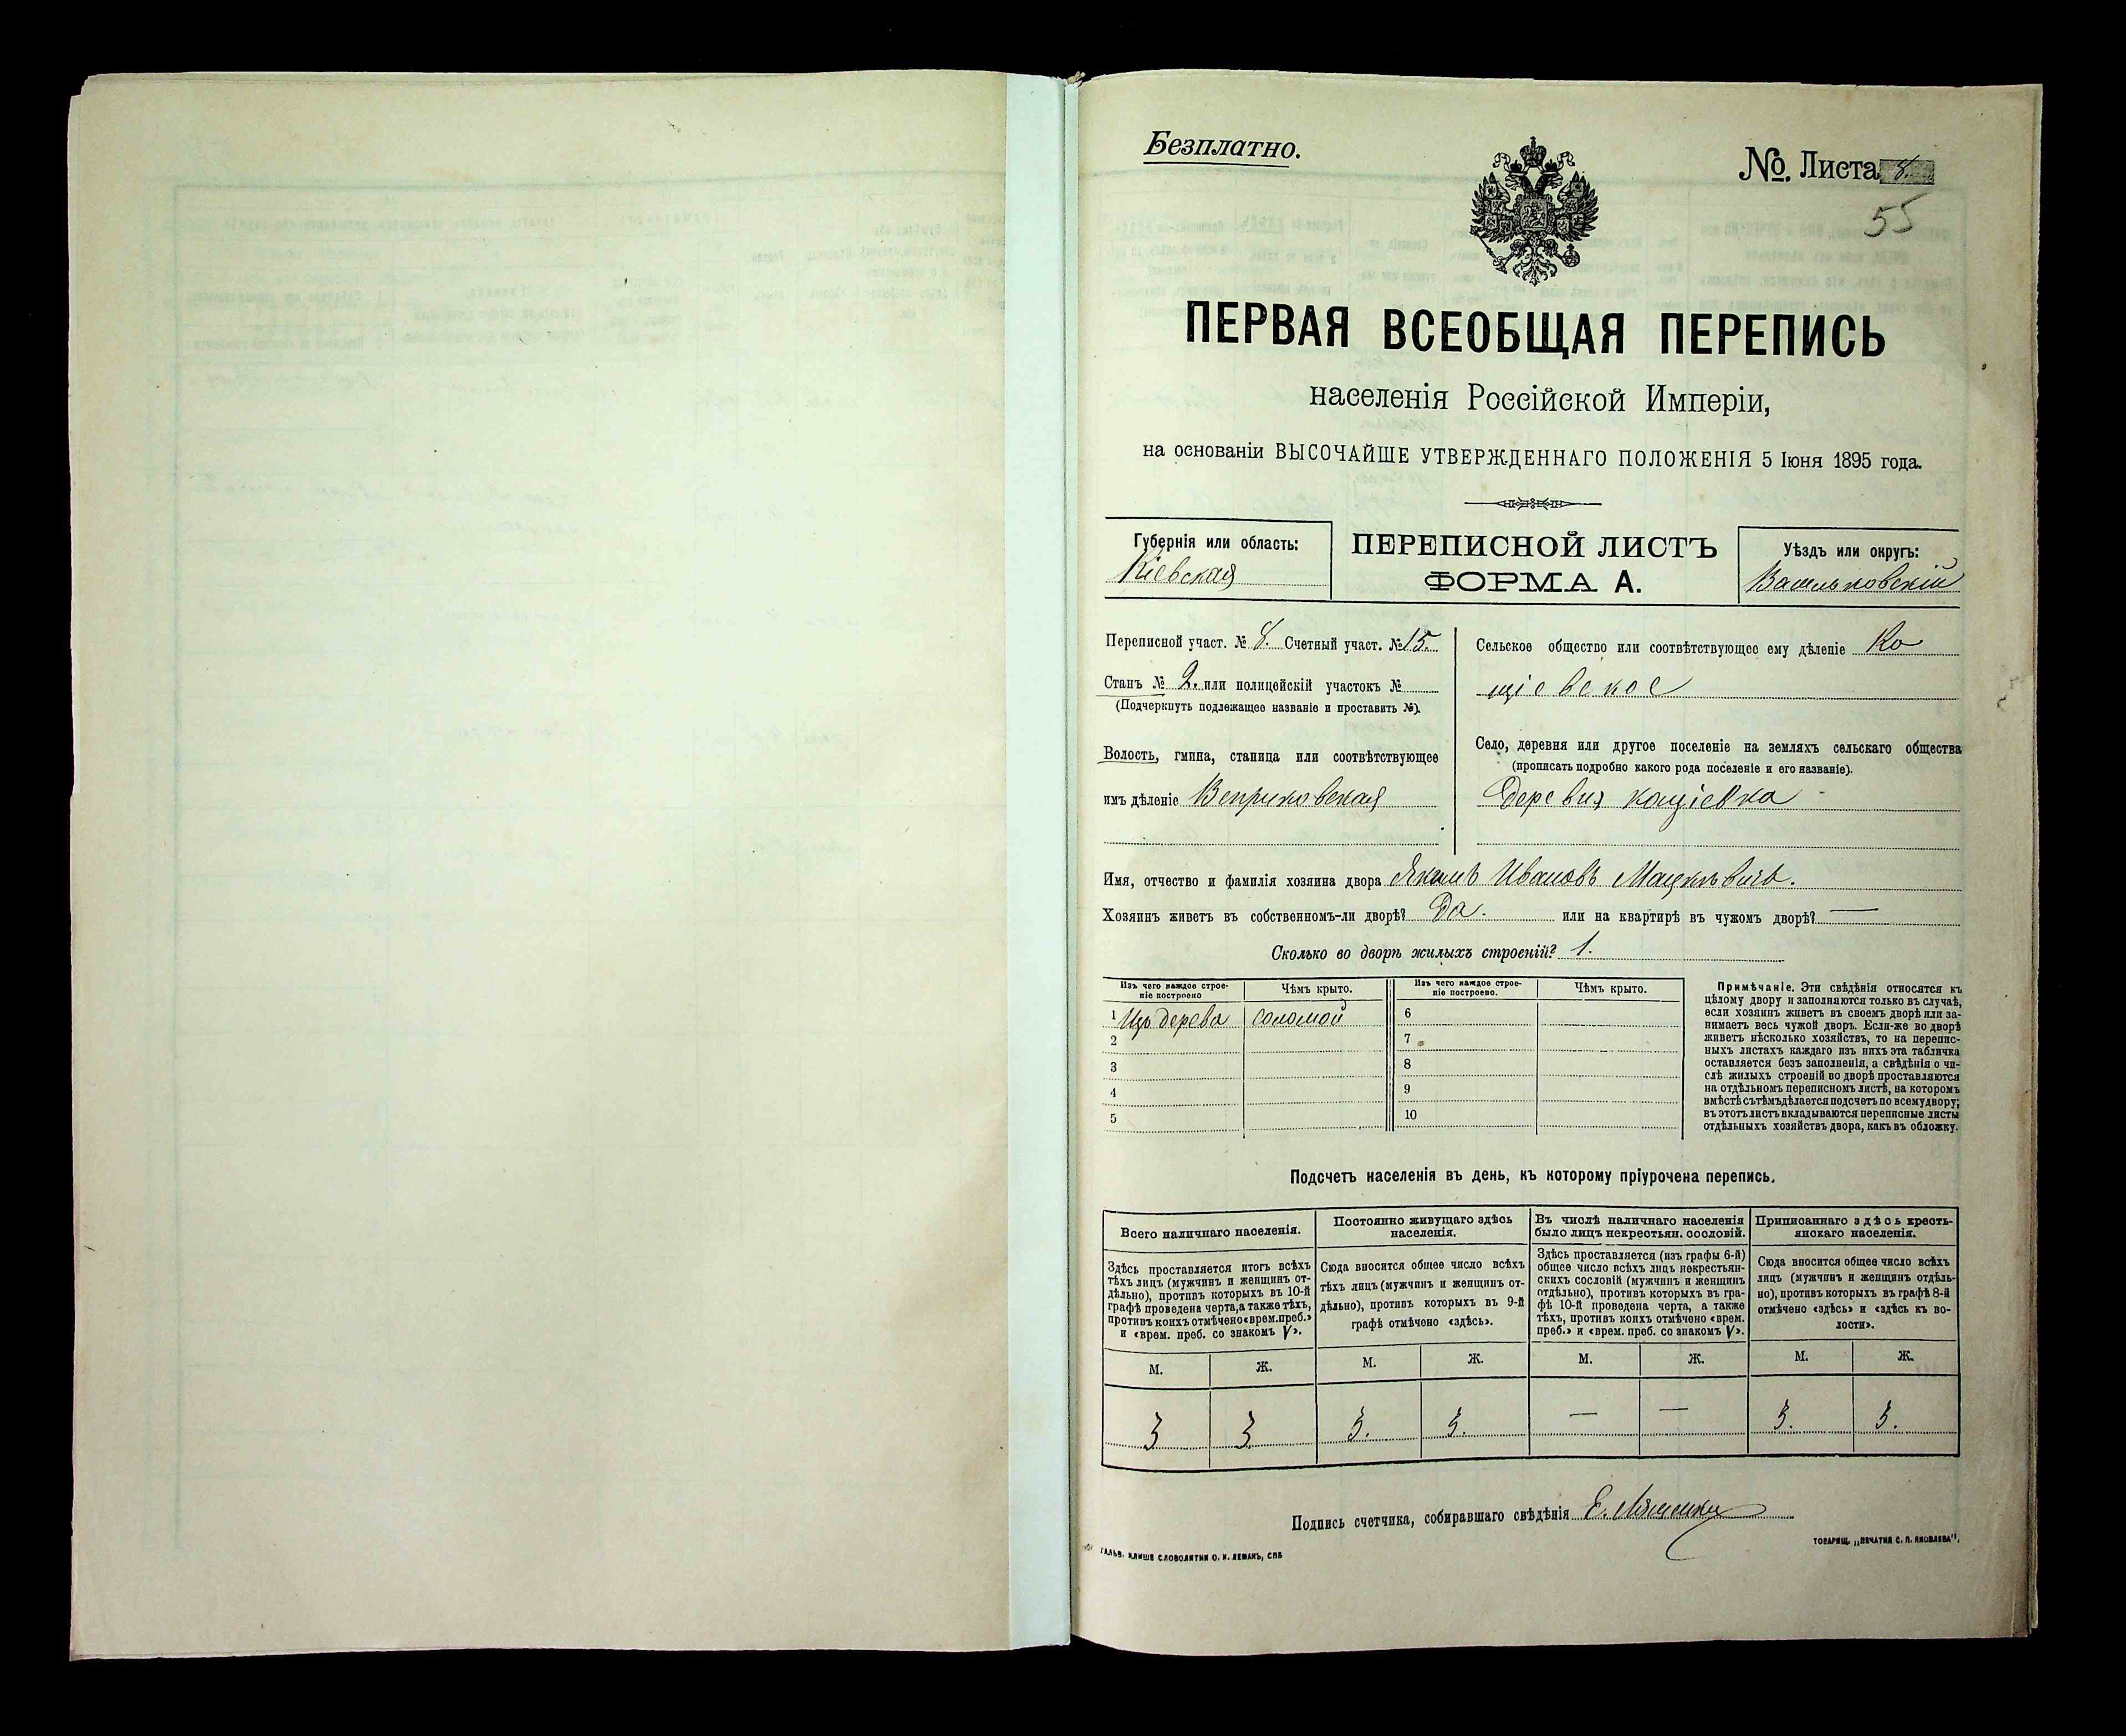 Безплатно.
№. Листа 8.
55
ПЕРВАЯ ВСЕОБЩАЯ ПЕРЕПИСЬ
населенія Россійской Имперіи,
на основаніи ВЫСОЧАЙШЕ УТВЕРЖДЕННАГО ПОЛОЖЕНІЯ 5 Іюня 1895 года.
Губернія или область:
Кіевская
ПЕРЕПИСНОЙ ЛИСТЪ
ФОРМА А.
Уѣздъ или округъ:
Васильковскій
Переписной участ. № 8. Счетный участ. № 15.
Станъ № 2. или полицейскій участокъ №
(Подчеркнуть подлежащее названіе и проставить №).
Волость, гмина, станица или соотвѣтствующее
имъ дѣленіе Веприковская
Сельское общество или соотвѣтствующее ему дѣленіе Ко
щіевское
Село, деревня или другое поселеніе на земляхъ сельскаго общества
(прописать подробно какого рода поселеніе и его названіе).
Деревня кощіевка
Имя, отчество и фамилія хозяина двора Якимъ Ивановъ Мацкѣвичъ.
Хозяинъ живетъ въ собственномъ-ли дворѣ? Да. или на квартирѣ въ чужомъ дворѣ? —
Сколько во дворѣ жилыхъ строеній? 1.
Изъ чего каждое строе-
ніе построено
Чѣмъ крыто.
Изъ чего каждое строе-
ніе построено.
Чѣмъ крыто.
1 Изъ дерева соломой 6
2 7
3 8
4 9
5 10
Примѣчаніе. Эти свѣдѣнія относятся къ
цѣлому двору и заполняются только въ случаѣ,
если хозяинъ живетъ въ своемъ дворѣ или за-
нимаетъ весь чужой дворъ. Если-же во дворѣ
живетъ нѣсколько хозяйствъ, то на перепис-
ныхъ листахъ каждаго изъ нихъ эта табличка
оставляется безъ заполненія, а свѣдѣнія о чи-
слѣ жилыхъ строеній во дворѣ проставляются
на отдѣльномъ переписномъ листѣ, на которомъ
вмѣстѣ съ тѣмъ дѣлается подсчетъ по всему двору;
въ этотъ листъ вкладываются переписные листы
отдѣльныхъ хозяйствъ двора, какъ въ обложку.
Подсчетъ населенія въ день, къ которому пріурочена перепись.
Всего наличнаго населенія.
Постоянно живущаго здѣсь
населенія.
Въ числѣ наличнаго населенія
было лицъ некрестьян. сословій.
Приписаннаго здѣсь кресть-
янскаго населенія.
Здѣсь проставляется итогъ всѣхъ
тѣхъ лицъ (мужчинъ и женщинъ от-
дѣльно), противъ которыхъ въ 10-й
графѣ проведена черта, а также тѣхъ,
противъ коихъ отмѣчено «врем. преб.»
и «врем. преб. со знакомъ V».
Сюда вносится общее число всѣхъ
тѣхъ лицъ (мужчинъ и женщинъ от-
дѣльно), противъ которыхъ въ 9-й
графѣ отмѣчено «здѣсь».
Здѣсь проставляется (изъ графы 6-й)
общее число всѣхъ лицъ некрестьян-
скихъ сословій (мужчинъ и женщинъ
отдѣльно), противъ которыхъ въ гра-
фѣ 10-й проведена черта, а также
тѣхъ, противъ коихъ отмѣчено «врем.
преб.» и «врем. преб. со знакомъ V».
Сюда вносится общее число всѣхъ
лицъ (мужчинъ и женщинъ отдѣль-
но), противъ которыхъ въ графѣ 8-й
отмѣчено «здѣсь» и «здѣсь къ во-
лости».
М. Ж. М. Ж. М. Ж. М. Ж.
3 3 3. 3. — — 3. 3.
Подпись счетчика, собиравшаго свѣдѣнія Е.
ГАЛЬВ. КЛИШЕ СЛОВОЛИТНИ О. И. ЛЕМАНЪ, СПБ
ТОВАРИЩ. „ПЕЧАТНЯ С. П. ЯКОВЛЕВА“.